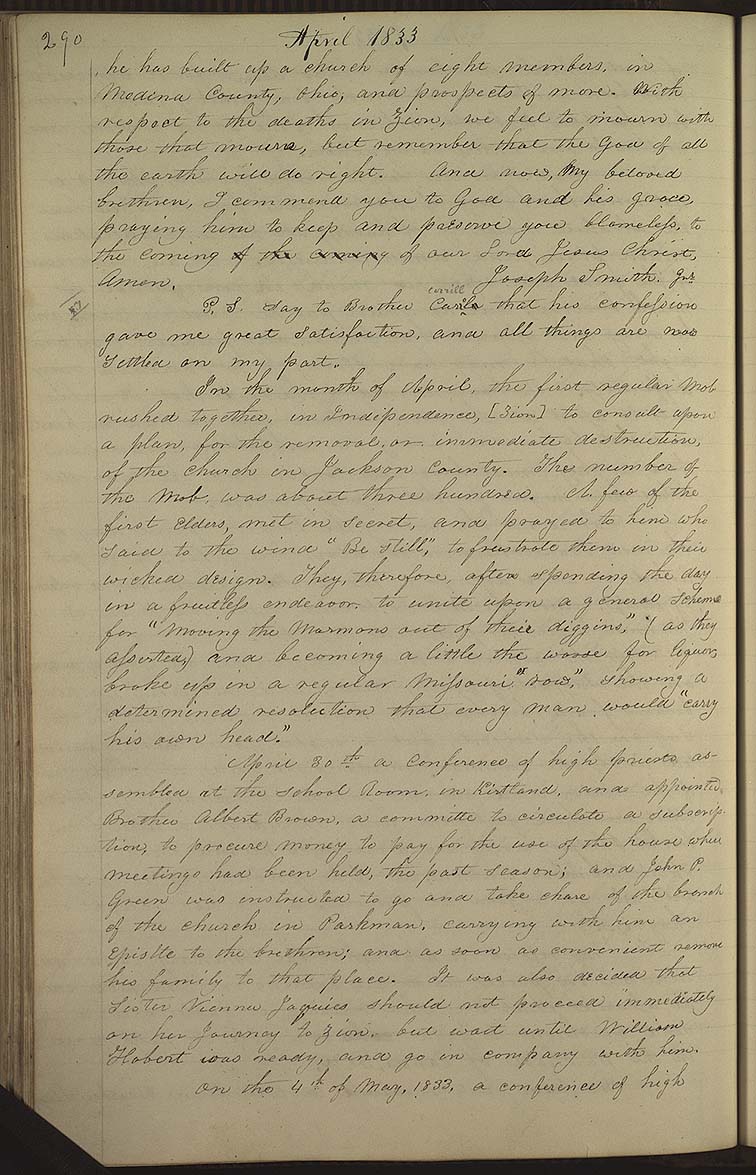 290
April 1833
he has built up a church of eight members, in
Medina County, Ohio, and prospects of more. With
respect to the deaths in Zion, we feel to mourn with
those that mourn, but remember that the God of all
the earth will do right. And now, My beloved
brethren, I commend you to God and his grace,
praying him to keep and preserve you blameless, to
the coming of the coming of our Lord Jesus Christ,
Amen. Joseph Smith. Jnr
corrill
P. S. Say to Brother that his confession
gave me great satisfaction, and all things are now
settled on my part.
In the month of April, the first regular Mob
rushed together, in Independence, [Zion] to consult upon
a plan, for the removal, or immediate destruction,
of the church in Jackson County. The number of
the Mob, was about three hundred. A few of the
first elders, met in secret, and prayed to him who
said to the wind "Be still," to frustrate them in their
wicked design. They, therefore, after spending the day
in a fruitless endeavor to unite upon a general scheme
for "Moving the Mormons out of their diggins," (as they
asserted,) and becoming a little the worse for liquor,
broke up in a regular Missouri "row," showing a
determined resolution that every man would "carry
his own head."
April 30th a Conference of high priests as-
sembled at the School Room, in Kirtland, and appointed
Brother Albert Brown, a committe to circulate a subscrip-
tion, to procure money to pay for the use of the house where
meetings had been held, the past season; and John P.
Green was instructed to go and take chare of the branch
of the church in Parkman, carrying with him an
Epistle to the brethren; and as soon as convenient remove
his family to that place. It was also decided that
Sister Vienna Jaquies should not proceed immediately
on her Journey to Zion, but wait until William
Hobert was ready, and go in company with him.
On the 4th of May, 1833, a conference of high